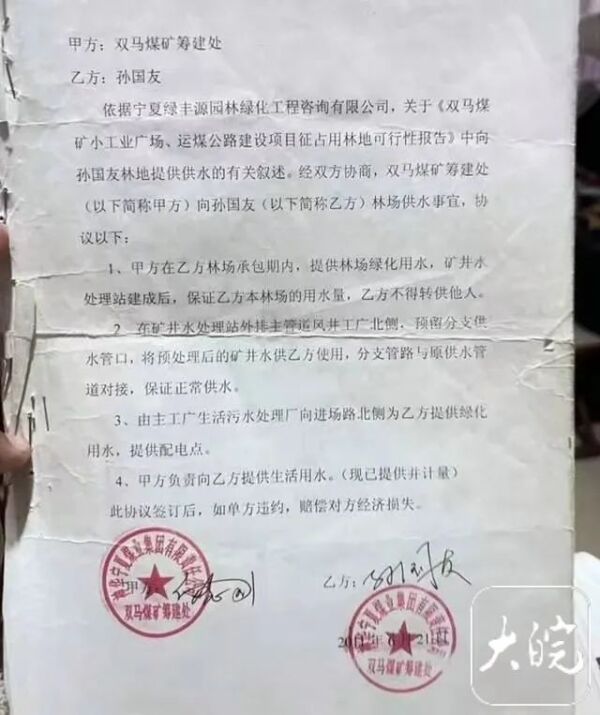 甲方：双马煤矿筹建处
乙方：孙国友
依据宁夏绿丰源园林绿化工程咨询有限公司，关于《双马煤
矿小工业广场、运煤公路建设项目征占用林地可行性报告》中向
孙国友林地提供供水的有关叙述。经双方协商，双马煤矿筹建处
（以下简称甲方）向孙国友（以下简称乙方）林场供水事宜，协
议以下：
1、甲方在乙方林场承包期内，提供林场绿化用水，矿井水
处理站建成后，保证乙方本林场的用水量，乙方不得转供他人。
2、在矿井水处理站外排主管道风井工广北侧，预留分支供
水管口，将预处理后的矿井水供乙方使用，分支管路与原供水管
道对接，保证正常供水。
3、由主工广生活污水处理厂向进场路北侧为乙方提供绿化
用水，提供配电点。
4、甲方负责向乙方提供生活用水。（现已提供并计量）
此协议签订后，如单方违约，赔偿对方经济损失。
甲方：
乙方：孙国友
神华宁夏煤业集团有限责任
双马煤矿筹建处
神华宁夏煤业集团有限责任
双马煤矿筹建处
2011年6月21日
大皖